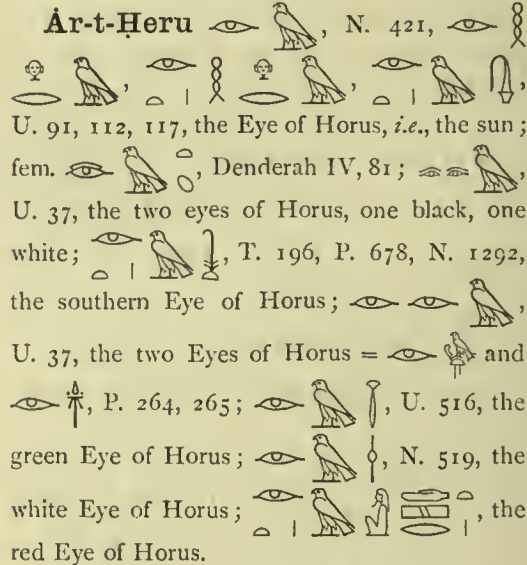 Ȧr-t-Ḥeru 𓁹𓅃, N. 421, 𓁹𓎛
𓁷𓂋𓅃, 𓁹𓏏𓏤𓎛𓁷𓂋𓅃, 𓁹𓏏𓏤𓅃,
U. 91, 112, 117, the Eye of Horus, i.e., the sun;
fem. 𓅃𓏏𓆇, Denderah IV, 81; 𓅃,
U. 37, the two eyes of Horus, one black, one
white; 𓁹𓏏𓏤𓅃, T. 196, P. 678, N. 1292,
the southern Eye of Horus; 𓁹𓁹𓅃,
U. 37, the two Eyes of Horus = 𓁹 and
𓁹, P. 264, 265; 𓁹𓅃𓇅, U. 516, the
green Eye of Horus; 𓁹𓅃, N. 519, the
white Eye of Horus; 𓁹𓏏𓏤𓅃, the
red Eye of Horus.